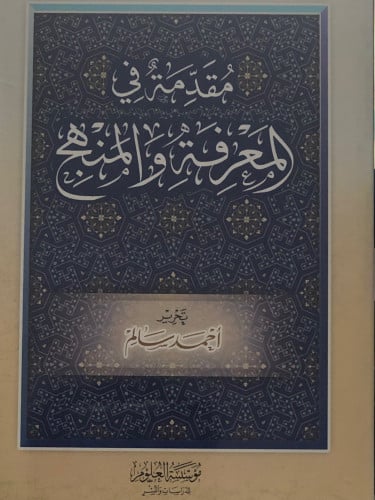 مُقَدِّمَةٌ فِي
المَعْرِفَةِ وَالمَنْهَجِ
تحرير
أحمد سالم
مؤسسة العلوم
للدراسات والنشر